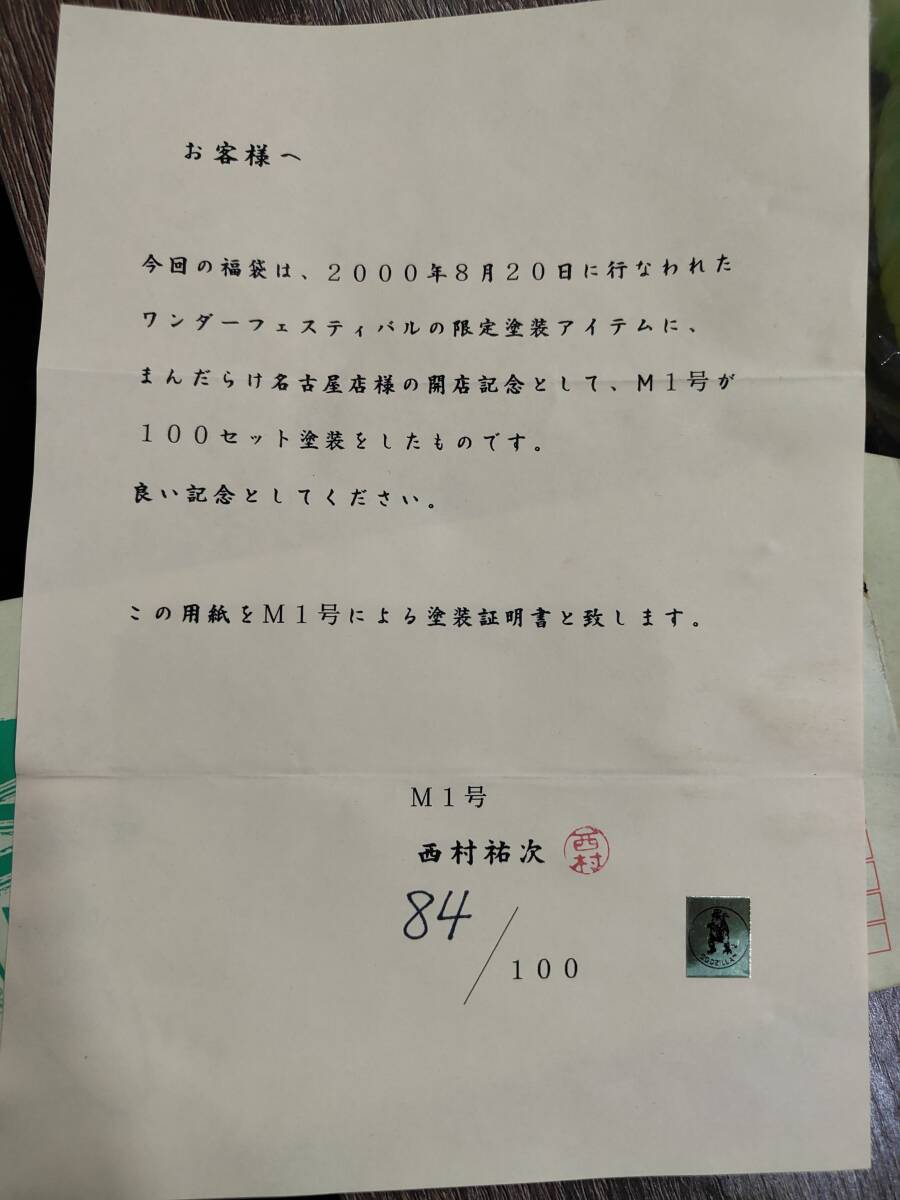 お客様へ
今回の福袋は、２０００年８月２０日に行なわれた
ワンダーフェスティバルの限定塗装アイテムに、
まんだらけ名古屋店様の開店記念として、Ｍ１号が
１００セット塗装をしたものです。
良い記念としてください。
この用紙をＭ１号による塗装証明書と致します。
Ｍ１号
西村祐次 西村
84／１００
GODZILLA